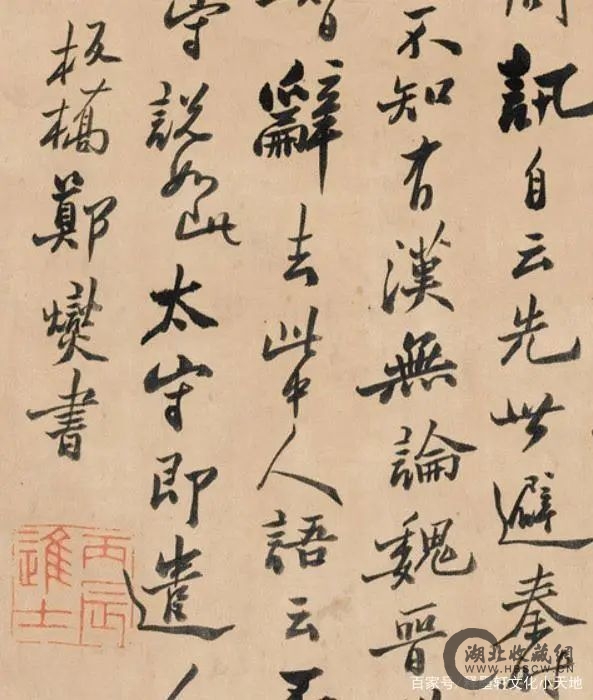 訊自云先世避秦
不知有漢無論魏晉
辭去此中人語云不
守說如此太守即遣人
板橋鄭燮書
丙辰進士
湖北收藏网
HBSCW.CN
百家号
轩文化小天地